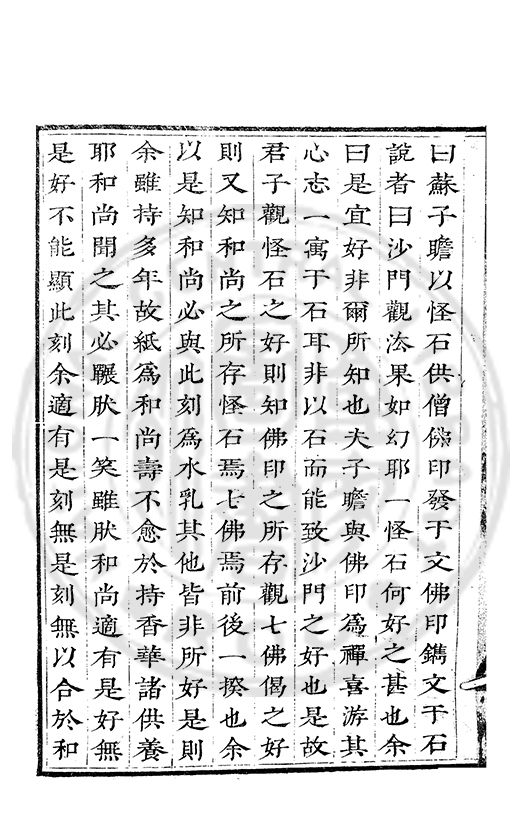 曰蘇子瞻以怪石供僧佛印發于文佛印鐫文于石
說者曰沙門觀法果如幻耶一怪石何好之甚也余
曰是宜好非爾所知也夫子瞻與佛印爲禪喜游其
心志一寓于石耳非以石而能致沙門之好也是故
君子觀怪石之好則知佛印之所存觀七佛偈之好
則又知和尚之所存怪石焉七佛焉前後一揆也余
以是知和尚必與此刻爲水乳其他皆非所好是則
余雖持多年故紙爲和尚壽不愈於持香華諸供養
耶和尚聞之其必冁肰一笑雖肰和尚適有是好無
是好不能顯此刻余適有是刻無是刻無以合於和